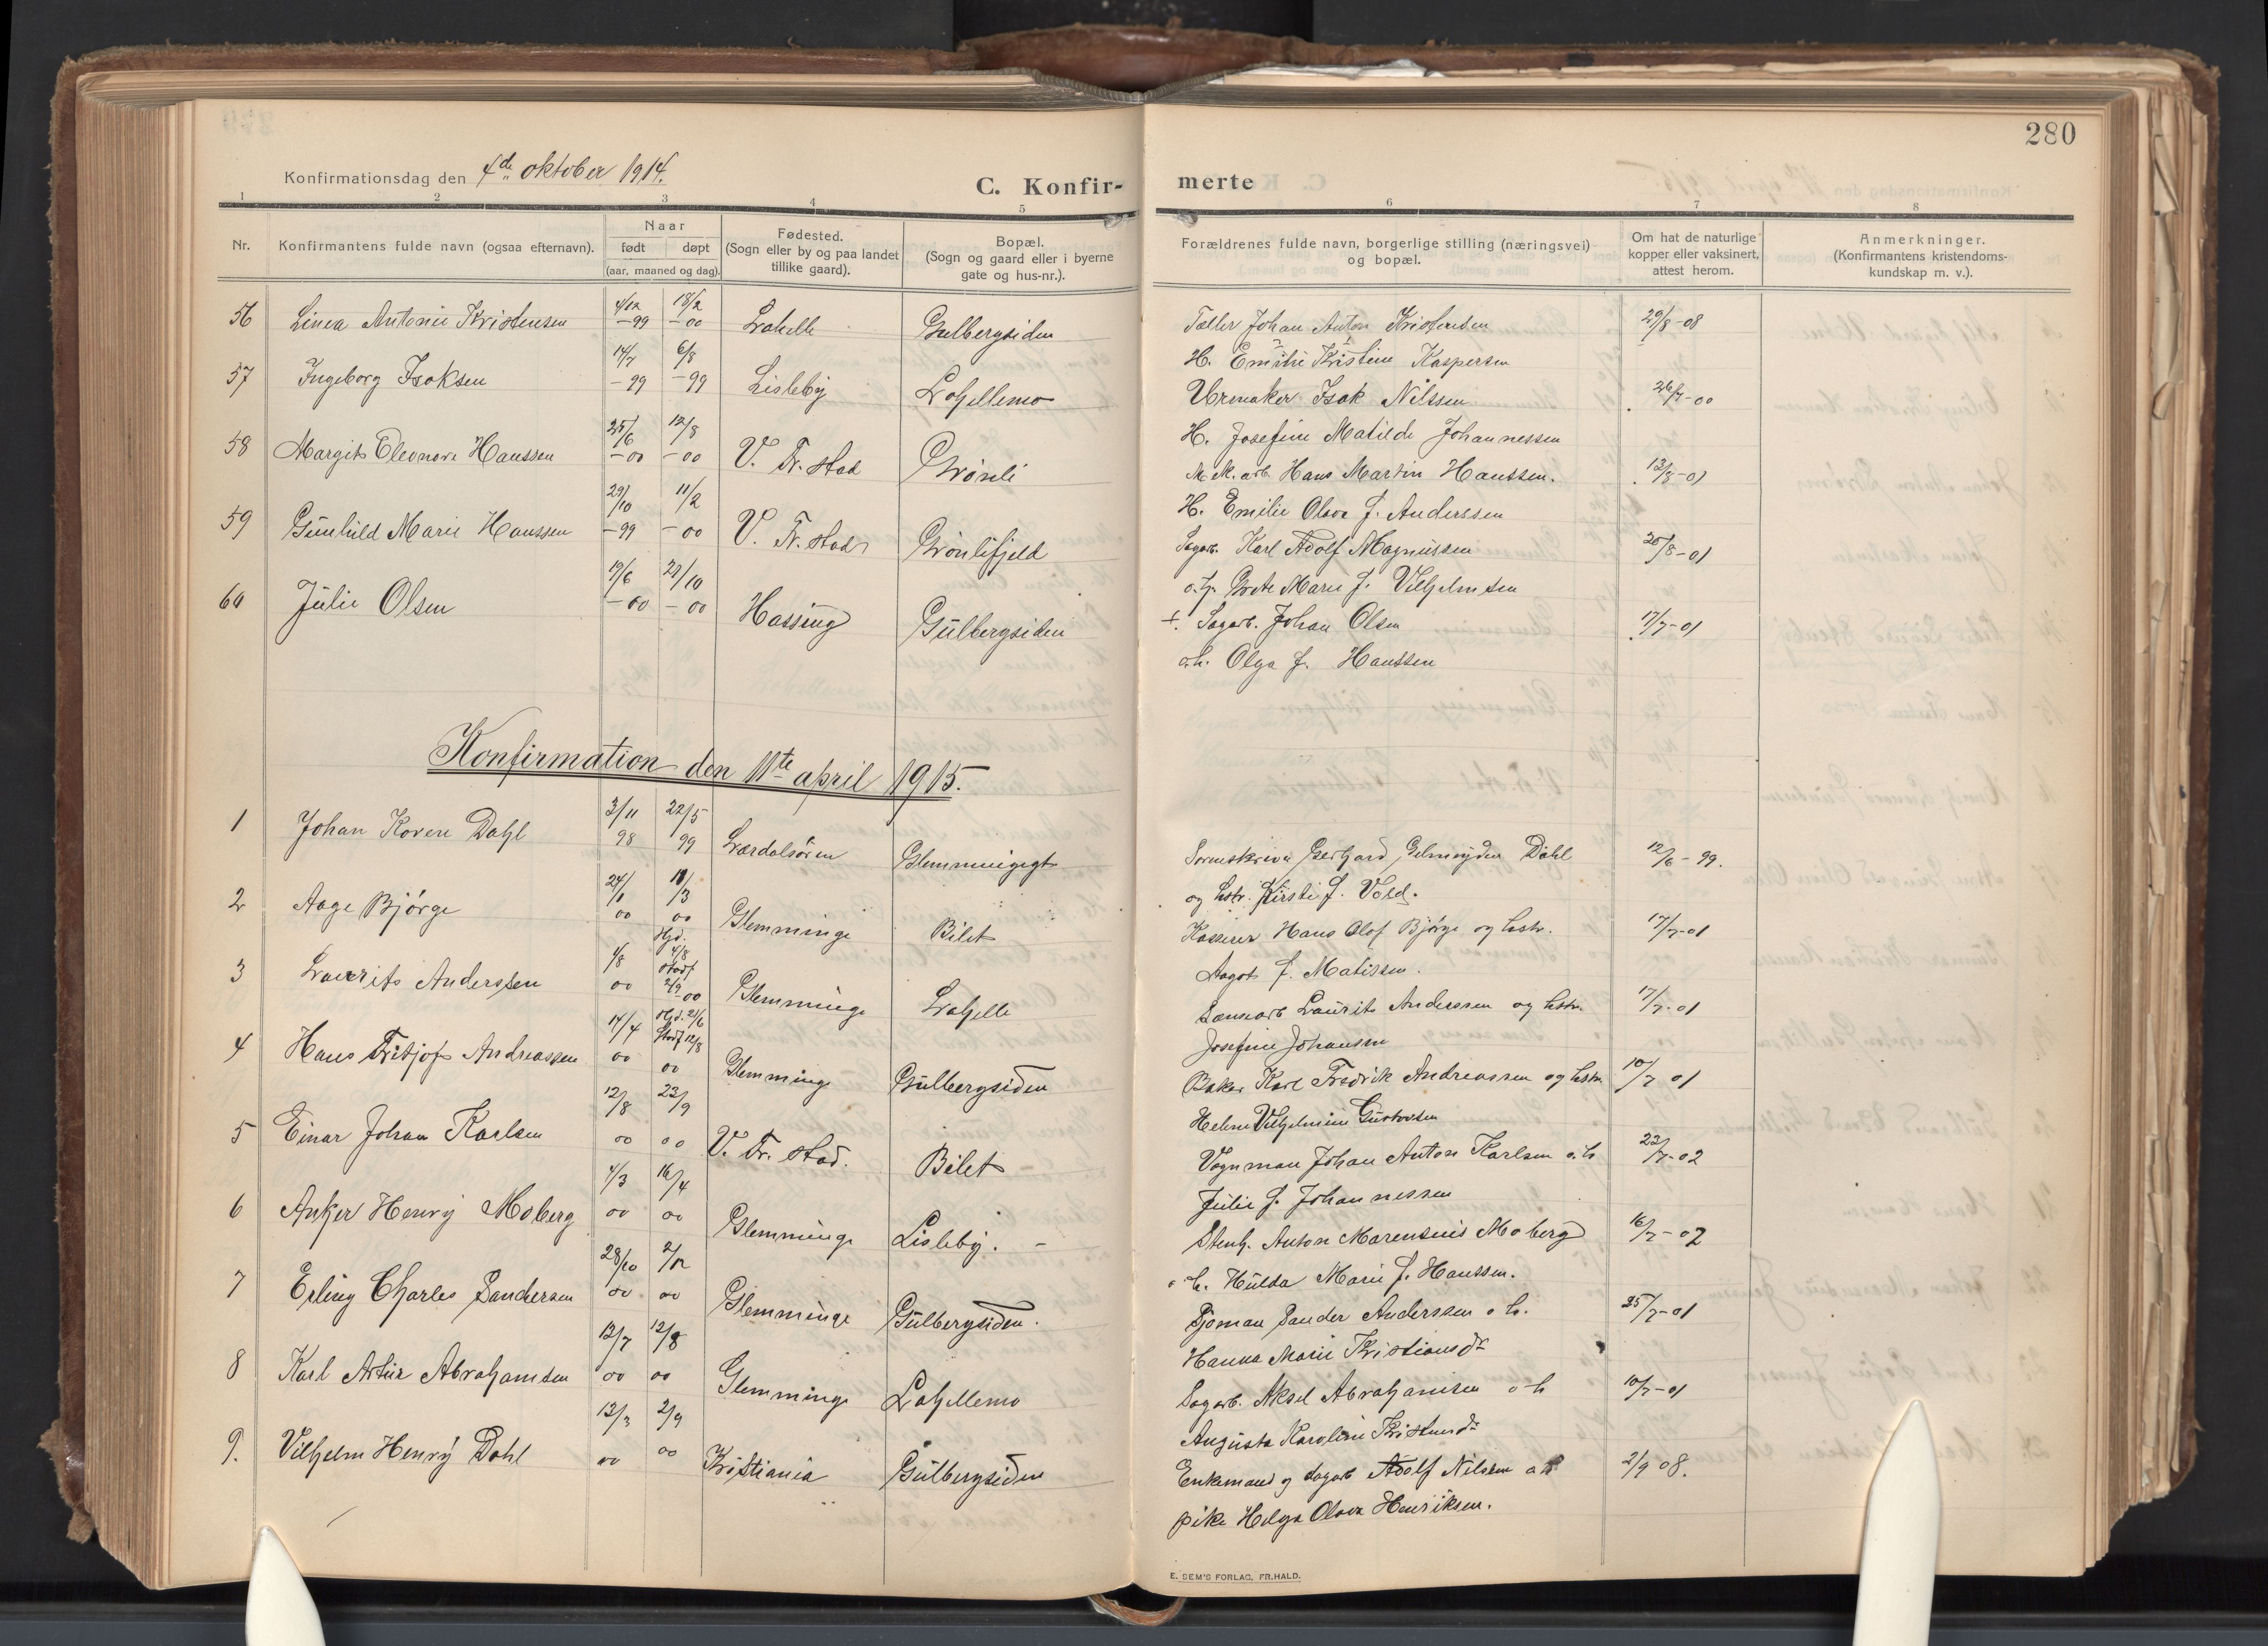 280
Konfirmationsdag den 4de oktober 1914.
C. Konfir-
merte
1 2 3 4 5 6 7 8
Nr.
Konfirmantens fulde navn (ogsaa efternavn).
Naar
født døpt
(aar, maaned og dag).
Fødested.
(Sogn eller by og paa landet
tillike gaard).
Bopæl.
(Sogn og gaard eller i byerne
gate og hus-nr.).
Forældrenes fulde navn, borgerlige stilling (næringsvei)
og bopæl.
Om hat de naturlige
kopper eller vaksinert,
attest herom.
Anmerkninger.
(Konfirmantens kristendoms-
kundskap m. v.).
56 Linea Antonie Kristensen 4/12 -99 18/2 -00 Lahelle Gulbergsiden Tæller Johan Anton Kristensen 29/8-08
H. Emilie Kristine Kaspersen
57 Ingeborg Isaksen 14/7 -99 6/8 -99 Lisleby Lahellemo Urmaker Isak Nilssen 26/7-00
H. Josefine Matilde Johannessen
58 Margit Eleonore Hanssen 25/6 -00 12/8 -00 V. Fr. stad Grønli Mek. arb. Hans Martin Hanssen. 13/8-01
H. Emilie Olava f. Anderssen
59 Gunhild Marie Hanssen 29/10 -99 11/2 -00 V. Fr. stad Grønlifjeld Sagarb. Karl Adolf Magnussen 20/8-01
o. h. Grete Marie f. Vilhjelmsen
60 Julie Olsen 19/6 -00 21/10 -00 Hassing Gulbergsiden +. Sagarb. Johan Olsen 17/7-01
o.h. Olga f. Hanssen
Konfirmation den 11te april 1915.
1 Johan Koren Dahl 3/11 98 22/5 99 Lærdalsøren Glemmingegt Sorenskriver Gerhard Gelmuyden Dahl 12/6-99.
og hstr. Kirsti f. Vold.
2 Aage Bjørge 24/1 00 18/3 00 Glemminge Bilet Kasserer Hans Olaf Bjørge og hstr. 17/7-01
Aagot f. Matissen.
3 Laurits Anderssen 4/8 00 Hjd. 4/8 Stadf 2/9-00 Glemminge Lahelle Lænsearb Laurits Anderssen og hstr. 17/7-01
Josefine Johansen
4 Hans Fritjof Andreassen 14/4 00 Hjd. 21/6 Stadf 12/8 00 Glemminge Gulbergsiden Baker Karl Fredrik Andreassen og hstr 10/7 01
Helene Vilhjelmine Gustavsen
5 Einar Johan Karlsen 12/8 00 23/9 00 V. Fr. stad. Bilet Vognman Johan Anton Karlsen o. h 22/7-02
Julie f. Johannessen
6 Anker Henry Moberg 4/3 00 16/4 00 Glemminge Lisleby. - Stenh. Anton Marensius Moberg 16/7-02
o h. Hulda Marie f. Hanssen.
7 Erling Charles Sandersen 28/10 00 2/12 00 Glemminge Gulbergsiden. Sjøman Sander Anderssen o h. 25/7-01
Hanna Marie Kristiansdr
8 Karl Artur Abrahamsen 13/7 00 12/8 00 Glemminge Lahellemo Sagarb. Aksel Abrahamsen o h 10/7-01
Augusta Karoline
9. Vilhjelm Henry Dahl 13/3 00 2/9 00 Kristiania Gulbergsiden Enkemand og sagarb Adolf Nilsen 2/9 08.
pike Helga Olava Henriksen.
E. SEM'S FORLAG, FR.HALD.